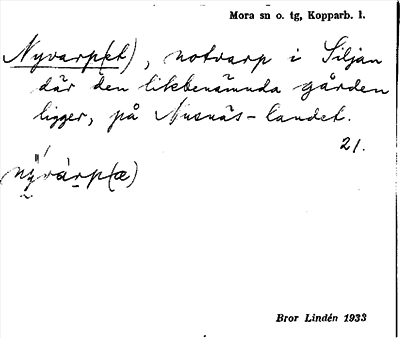 Mora sn o. tg, Kopparb. l.
Nyvarp(et), notvarp i Siljan
där den likbenämnda gården
ligger, på Nusnäs-landet.
21.
nỳvàrp(æ)
Bror Lindén 1933